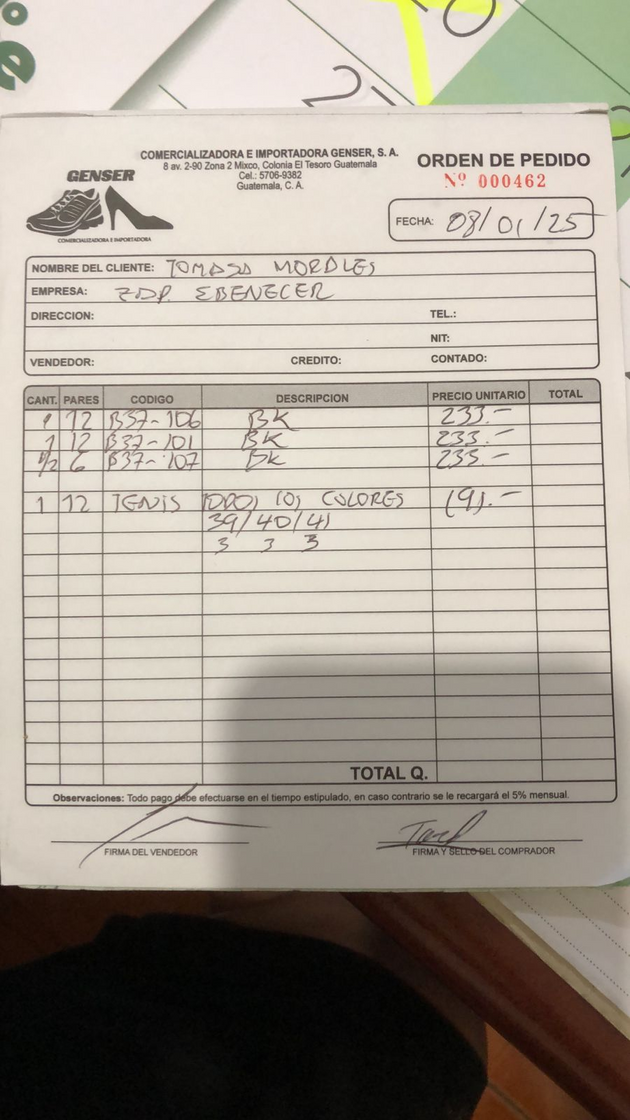 COMERCIALIZADORA E IMPORTADORA GENSER, S. A.
8 av. 2-90 Zona 2 Mixco, Colonia El Tesoro Guatemala
Cel.: 5706-9382
Guatemala, C. A.
GENSER
COMERCIALIZADORA E IMPORTADORA
ORDEN DE PEDIDO
Nº 000462
FECHA: 08/01/25
NOMBRE DEL CLIENTE: TOMASA MORALES
EMPRESA: ZAP. EBENECER
DIRECCION: TEL.:
NIT:
VENDEDOR: CREDITO: CONTADO:
CANT. PARES CODIGO DESCRIPCION PRECIO UNITARIO TOTAL
1 12 B37-106 BK 233.-
1 12 B37-101 BK 233.-
1/2 6 B37-107 BK 233.-
1 12 TENIS COLORES
39/40/41
3 3 3
TOTAL Q.
Observaciones: Todo pago debe efectuarse en el tiempo estipulado, en caso contrario se le recargará el 5% mensual.
FIRMA DEL VENDEDOR FIRMA Y SELLO DEL COMPRADOR